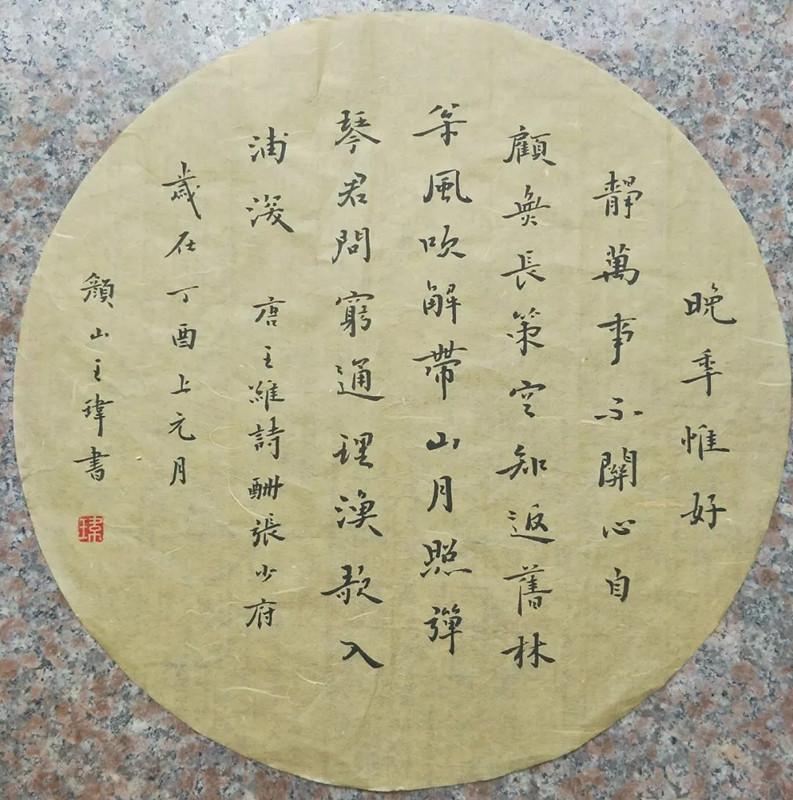 晚年惟好
靜萬事不關心自
顧無長策空知返舊林
枀風吹解帶山月照彈
琴君問窮通理漁歌入
浦深 唐王維詩酬張少府
歲在丁酉上元月
顏山王瑋書